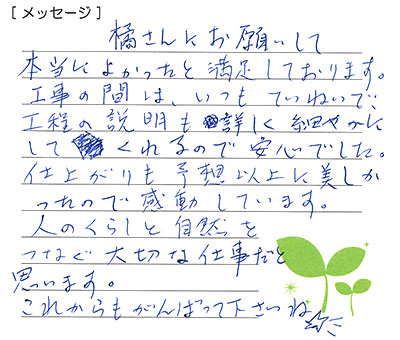 [メッセージ]
橘さんにお願いして
本当によかったと満足しております。
工事の間は、いつもていねいで、
工程の説明も詳しく細やかに
してくれるので安心でした。
仕上がりも予想以上に美しか
ったので感動しています。
人のくらしと自然を
つなぐ大切な仕事だと
思います。
これからもがんばって下さいね